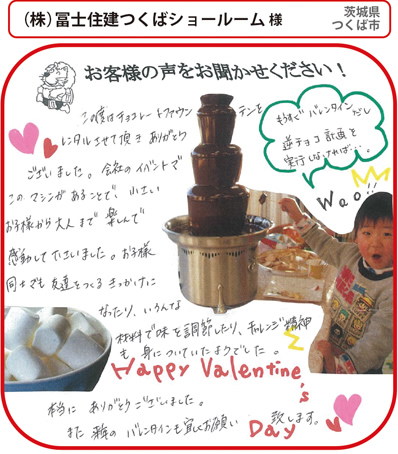 (株)冨士住建つくばショールーム 様
茨城県
つくば市
お客様の声をお聞かせください！
この度はチョコレートファウンテンを
レンタルさせて頂き ありがとう
ございました。会社のイベントで
このマシンがあることで、小さい
お子様から大人まで 楽しんで
感動して下さいました。お子様
同士でも友達をつくる きっかけに
なったり、いろんな
材料で味を調節したり、チャレンジ精神
も 身についていたようでした。
もうすぐ バレンタインだし
逆チョコ計画を
実行しなければ・・・。
Wao!!
Happy Valentine's
Day
本当に ありがとうございました。
また 来年の バレンタインも宜しくお願い 致します。